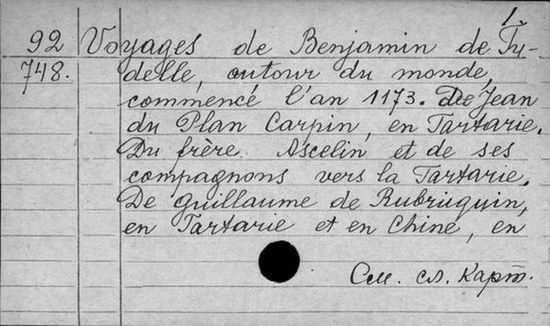 1.
92 Voyages de Benjamin de Tu-
748. delle, autour du monde,
commencé l'an 1173. De Jean
du Plan Carpin, en Tartarie.
Du frère Ascelin et de ses
compagnons vers la Tartarie.
De Guillaume de Rubruquin,
en Tartarie et en Chine, en
См. сл. карт.